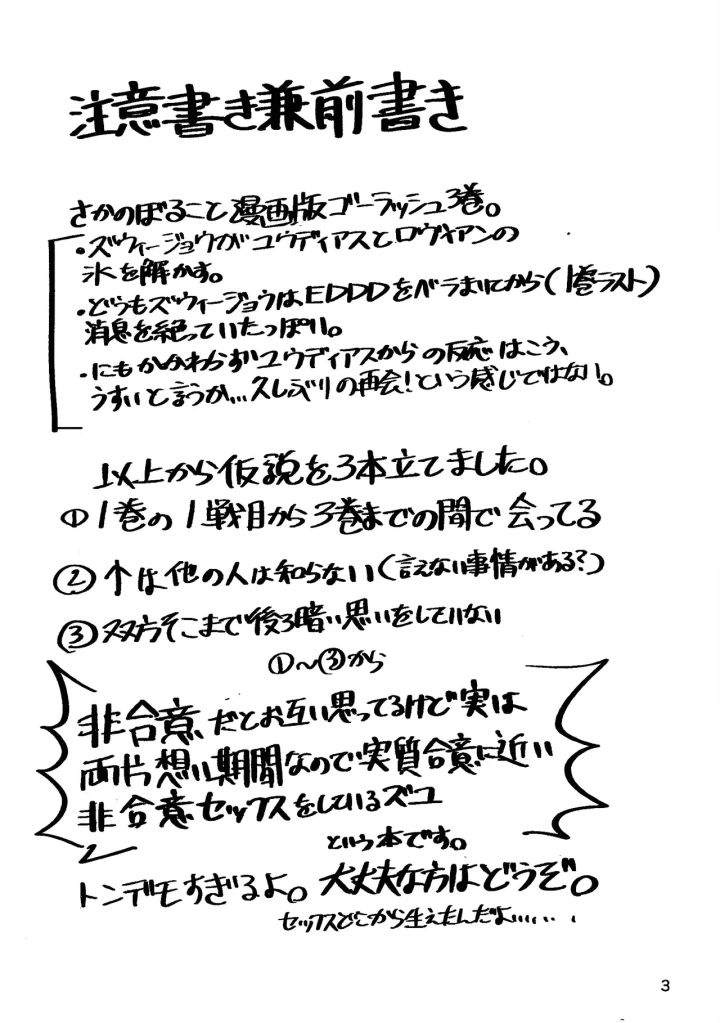 注意書き兼前書き
さかのぼること漫画版ゴーラッシュ3巻。
・ズウィージョウがユウディアスとロヴィアンの
氷を解かす。
・どうもズウィージョウはEDDDをベラまいにから(1巻ラスト)
消息を絶っていたっぽい。
・にもかかわらずユウディアスからの反応はこう、
うすいと言うか…久しぶりの再会!という感じではない。
以上から仮説を3本立てました。
①1巻の1戦目から3巻までの間で会ってる
②↑は他の人は知らない(言えない事情がある?)
③双方そこまで後ろ暗い思いをしていない
①~③から
非合意だとお互い思ってるけど実は
両片想い期間なので実質合意に近い
非合意セックスをしているズユ
という本です。
トンデモすぎるよ。犬丈夫な方はどうぞ。
セックスどこから生えたんだよ……
3